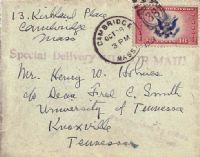 13. Kirkland Place
Cambridge
Mass
CAMBRIDGE
OCT 9
3 PM
MASS.
Special Delivery
AIR MAIL
Mr. Henry W. Holmes
c/o Dean Fred C. Smith
University of Tennessee
Knoxville
Tennessee